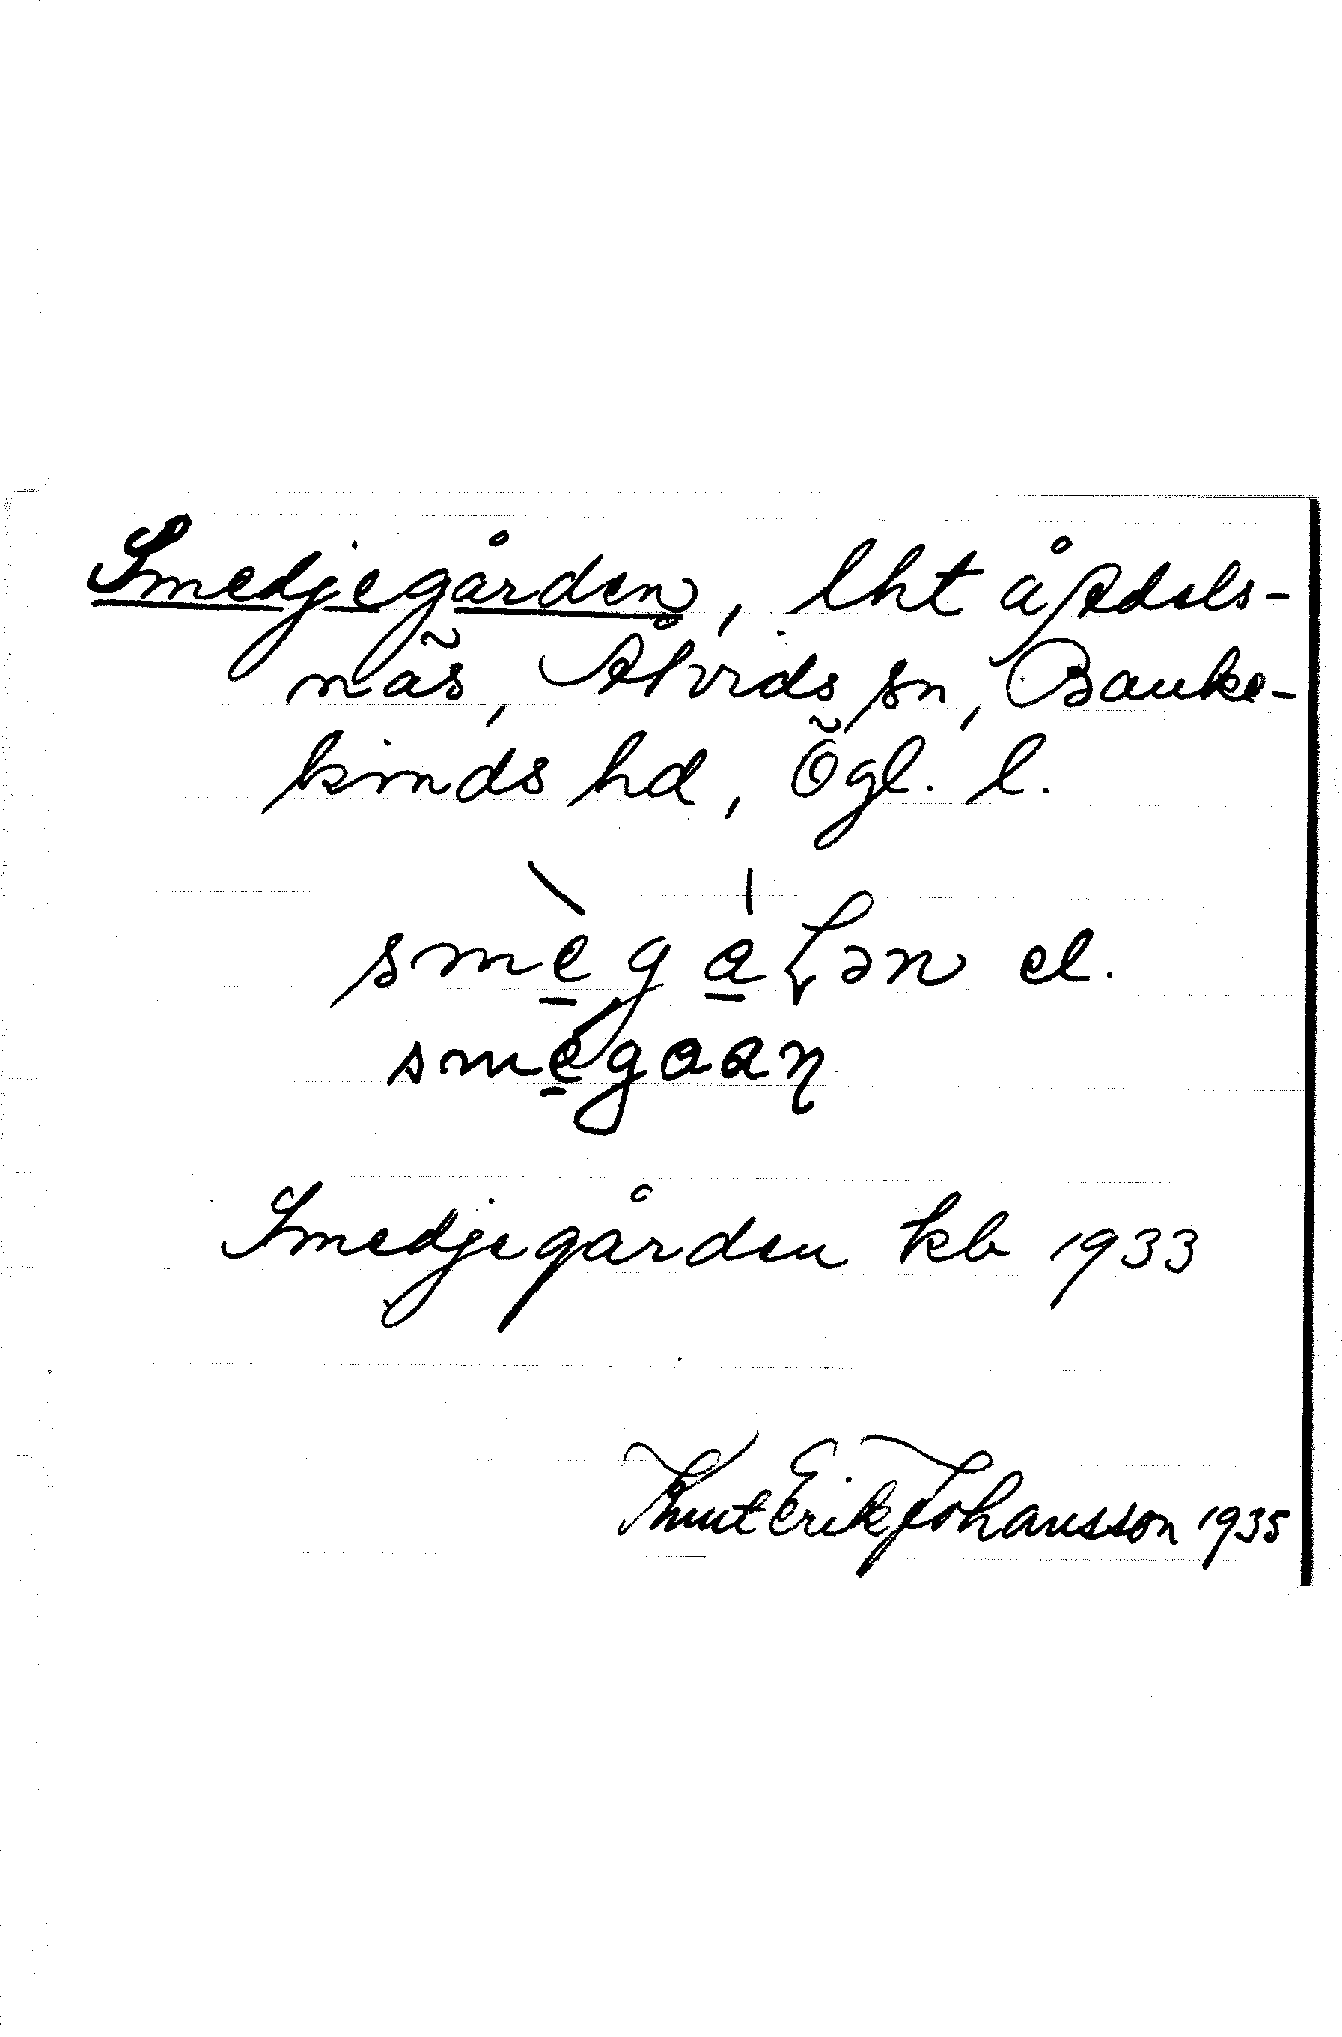 Smedjegården, lht å Adels-
näs, Åtvids sn, Banke-
kinds hd, Ögl. l.
el.
Smedjegården kb 1933
Knut Erik Johansson 1935